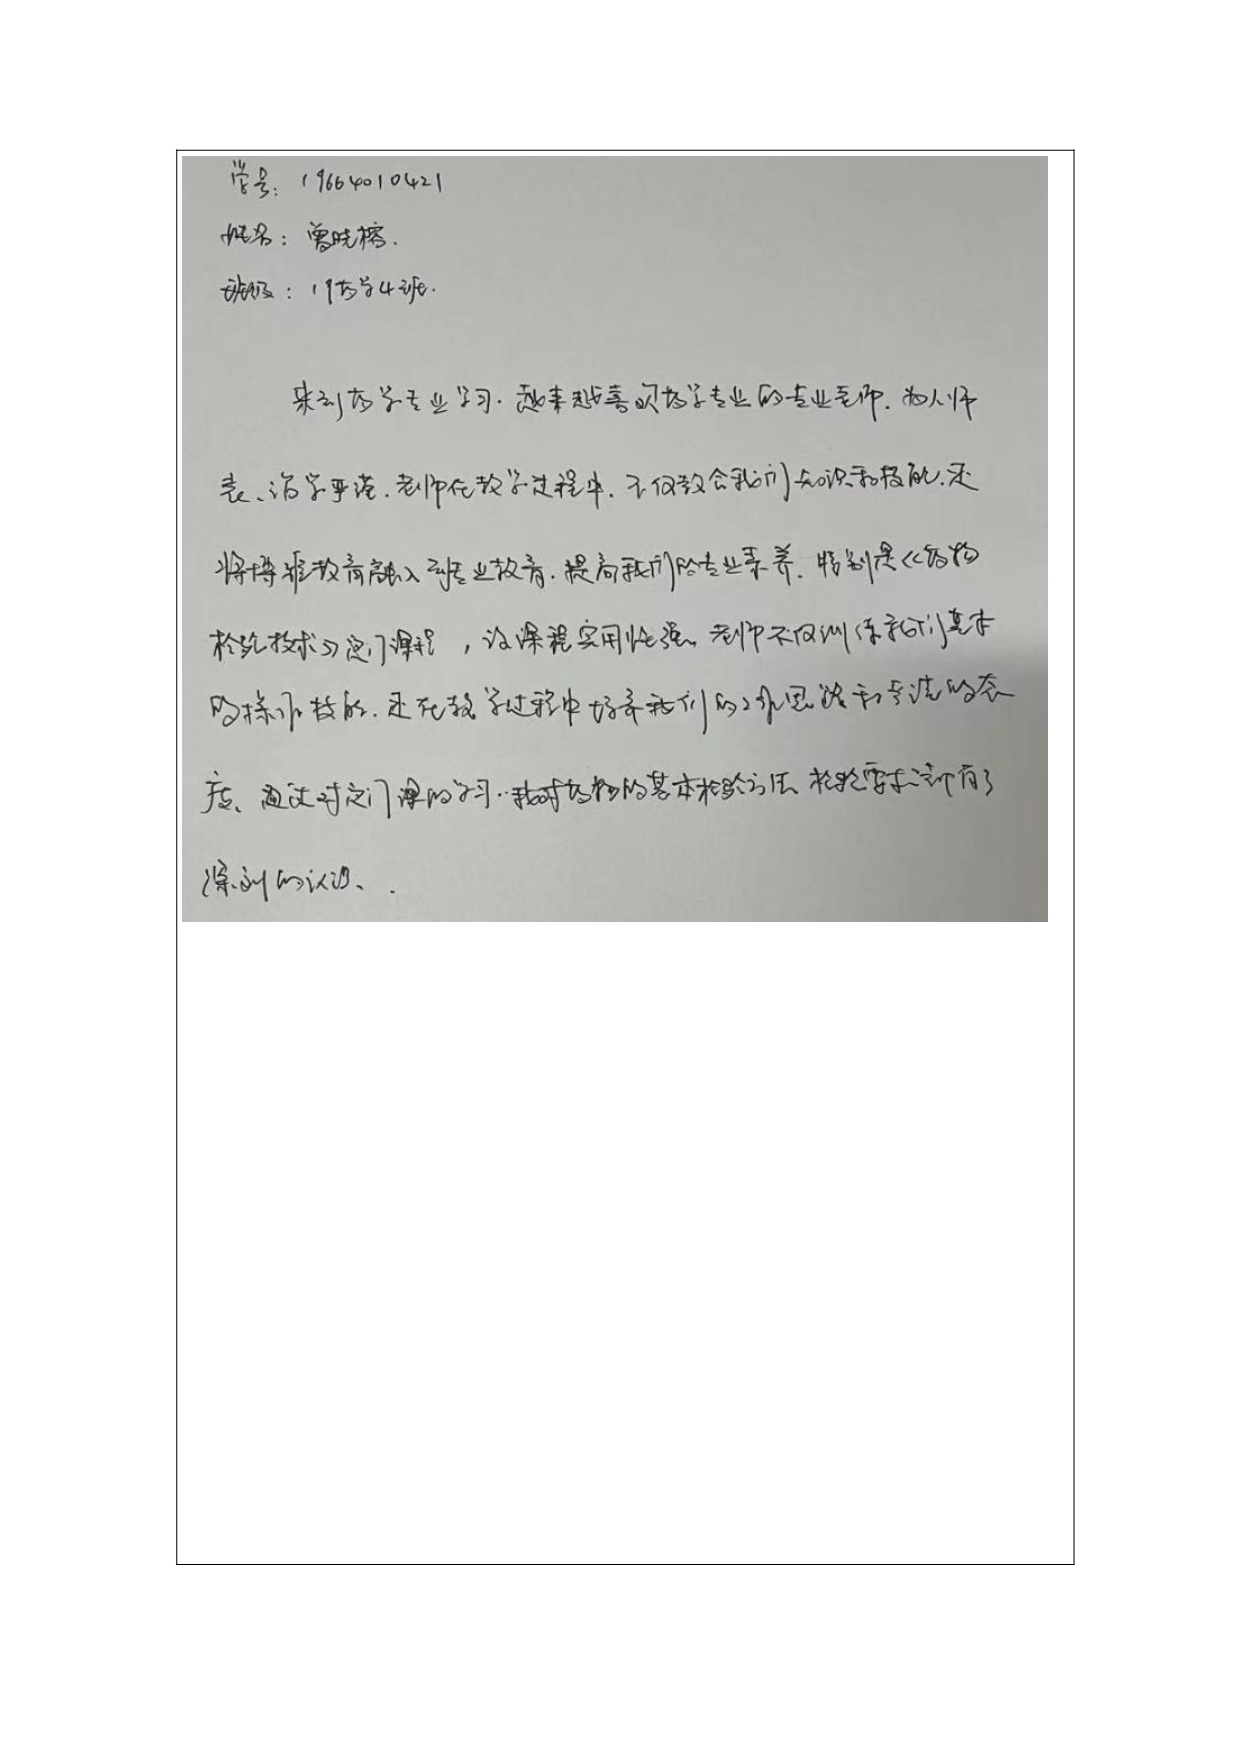 学号：19664010421
姓名：曾晓榕.
班级：19药学4班.
来到药学专业学习.越来越喜欢药学专业的专业老师.为人师
表、治学严谨.老师在教学过程中.不仅教会我们知识和技能.还
将博雅教育融入到专业教育.提高我们的专业素养.特别是《药物
检验技术》这门课程，该课程实用性强。老师不仅训练我们基本
的操作技能.还在教学过程中培养我们的工作思路和严谨的态
度、通过对这门课的学习..我对药物的基本检验方法、检验要求都有了
深刻的认识、.